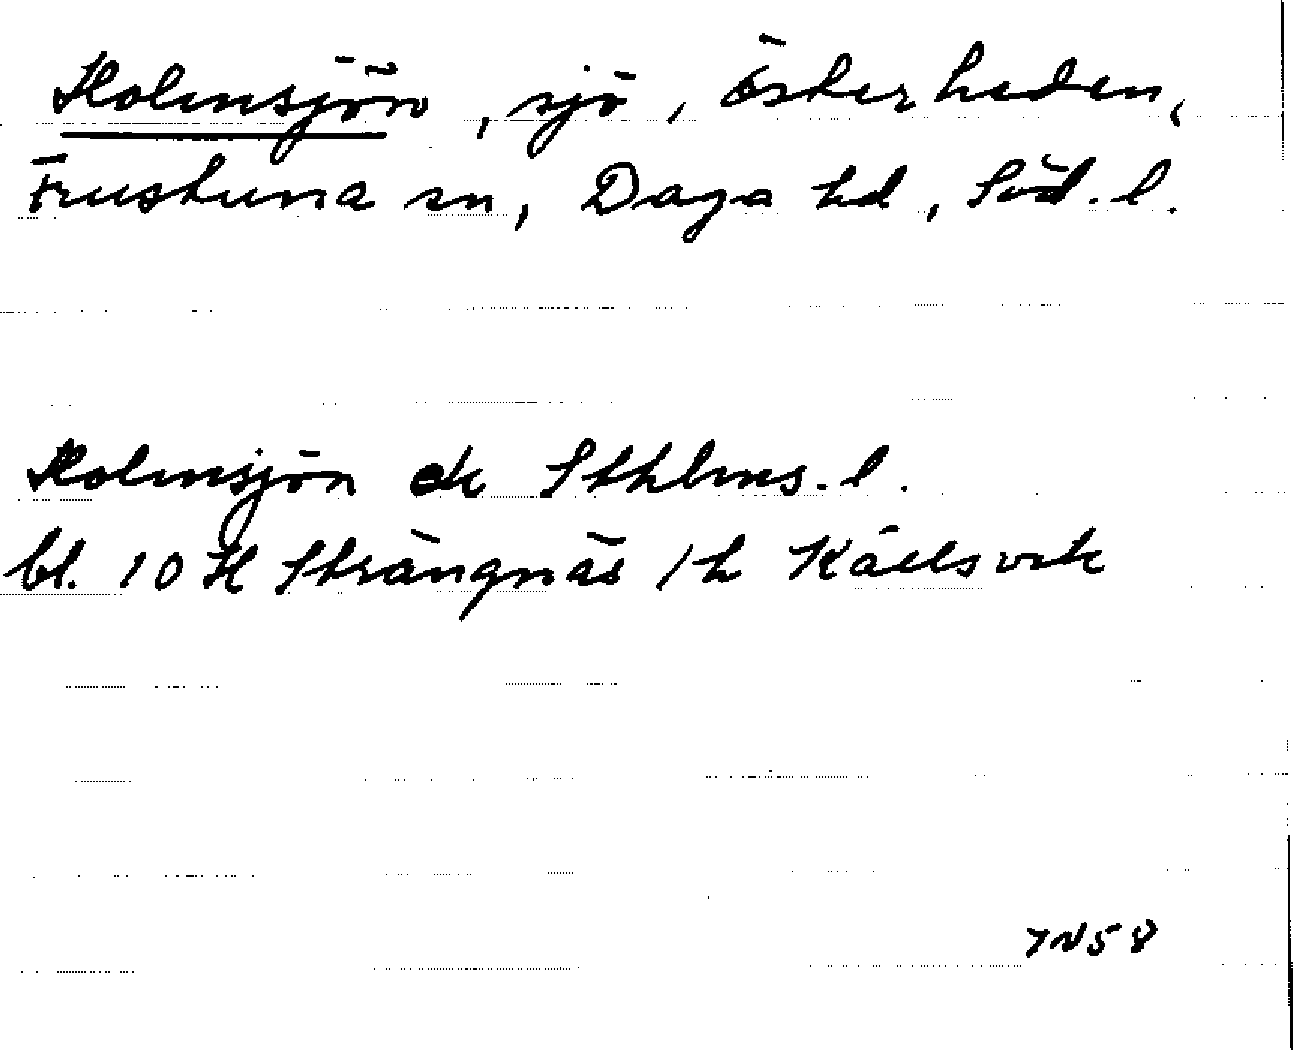 Holmsjön, sjö, Österheden,
Frustuna sn, Daga hd, Söd. l.
Holmsjön ek Sthlms. l.
bl. 10 H Strängnäs 1h Källsvik
7N58